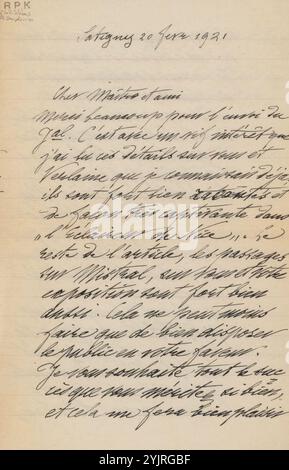 RPK
Satigny 20 fevr 1921
Cher Maître et ami
Merci beaucoup pour l'envoi du
Gal. C'est avec un vif intérêt que
j'ai lu ces détails sur vous et
Verlaine que je connaissais déjà
ils sont fort bien racontés et
de façon très captivante dans
Le
reste de l'article, les passages
sur Mistral, sur votre
exposition sont fort bien
aussi. Cela ne peut nous
faire que de bien disposer
le public en votre faveur.
Je vous souhaite tout le suc
cès que vous méritez si bien,
et cela me fera bien plaisir
alamy
Image ID: 2WJRGBF
www.alamy.com